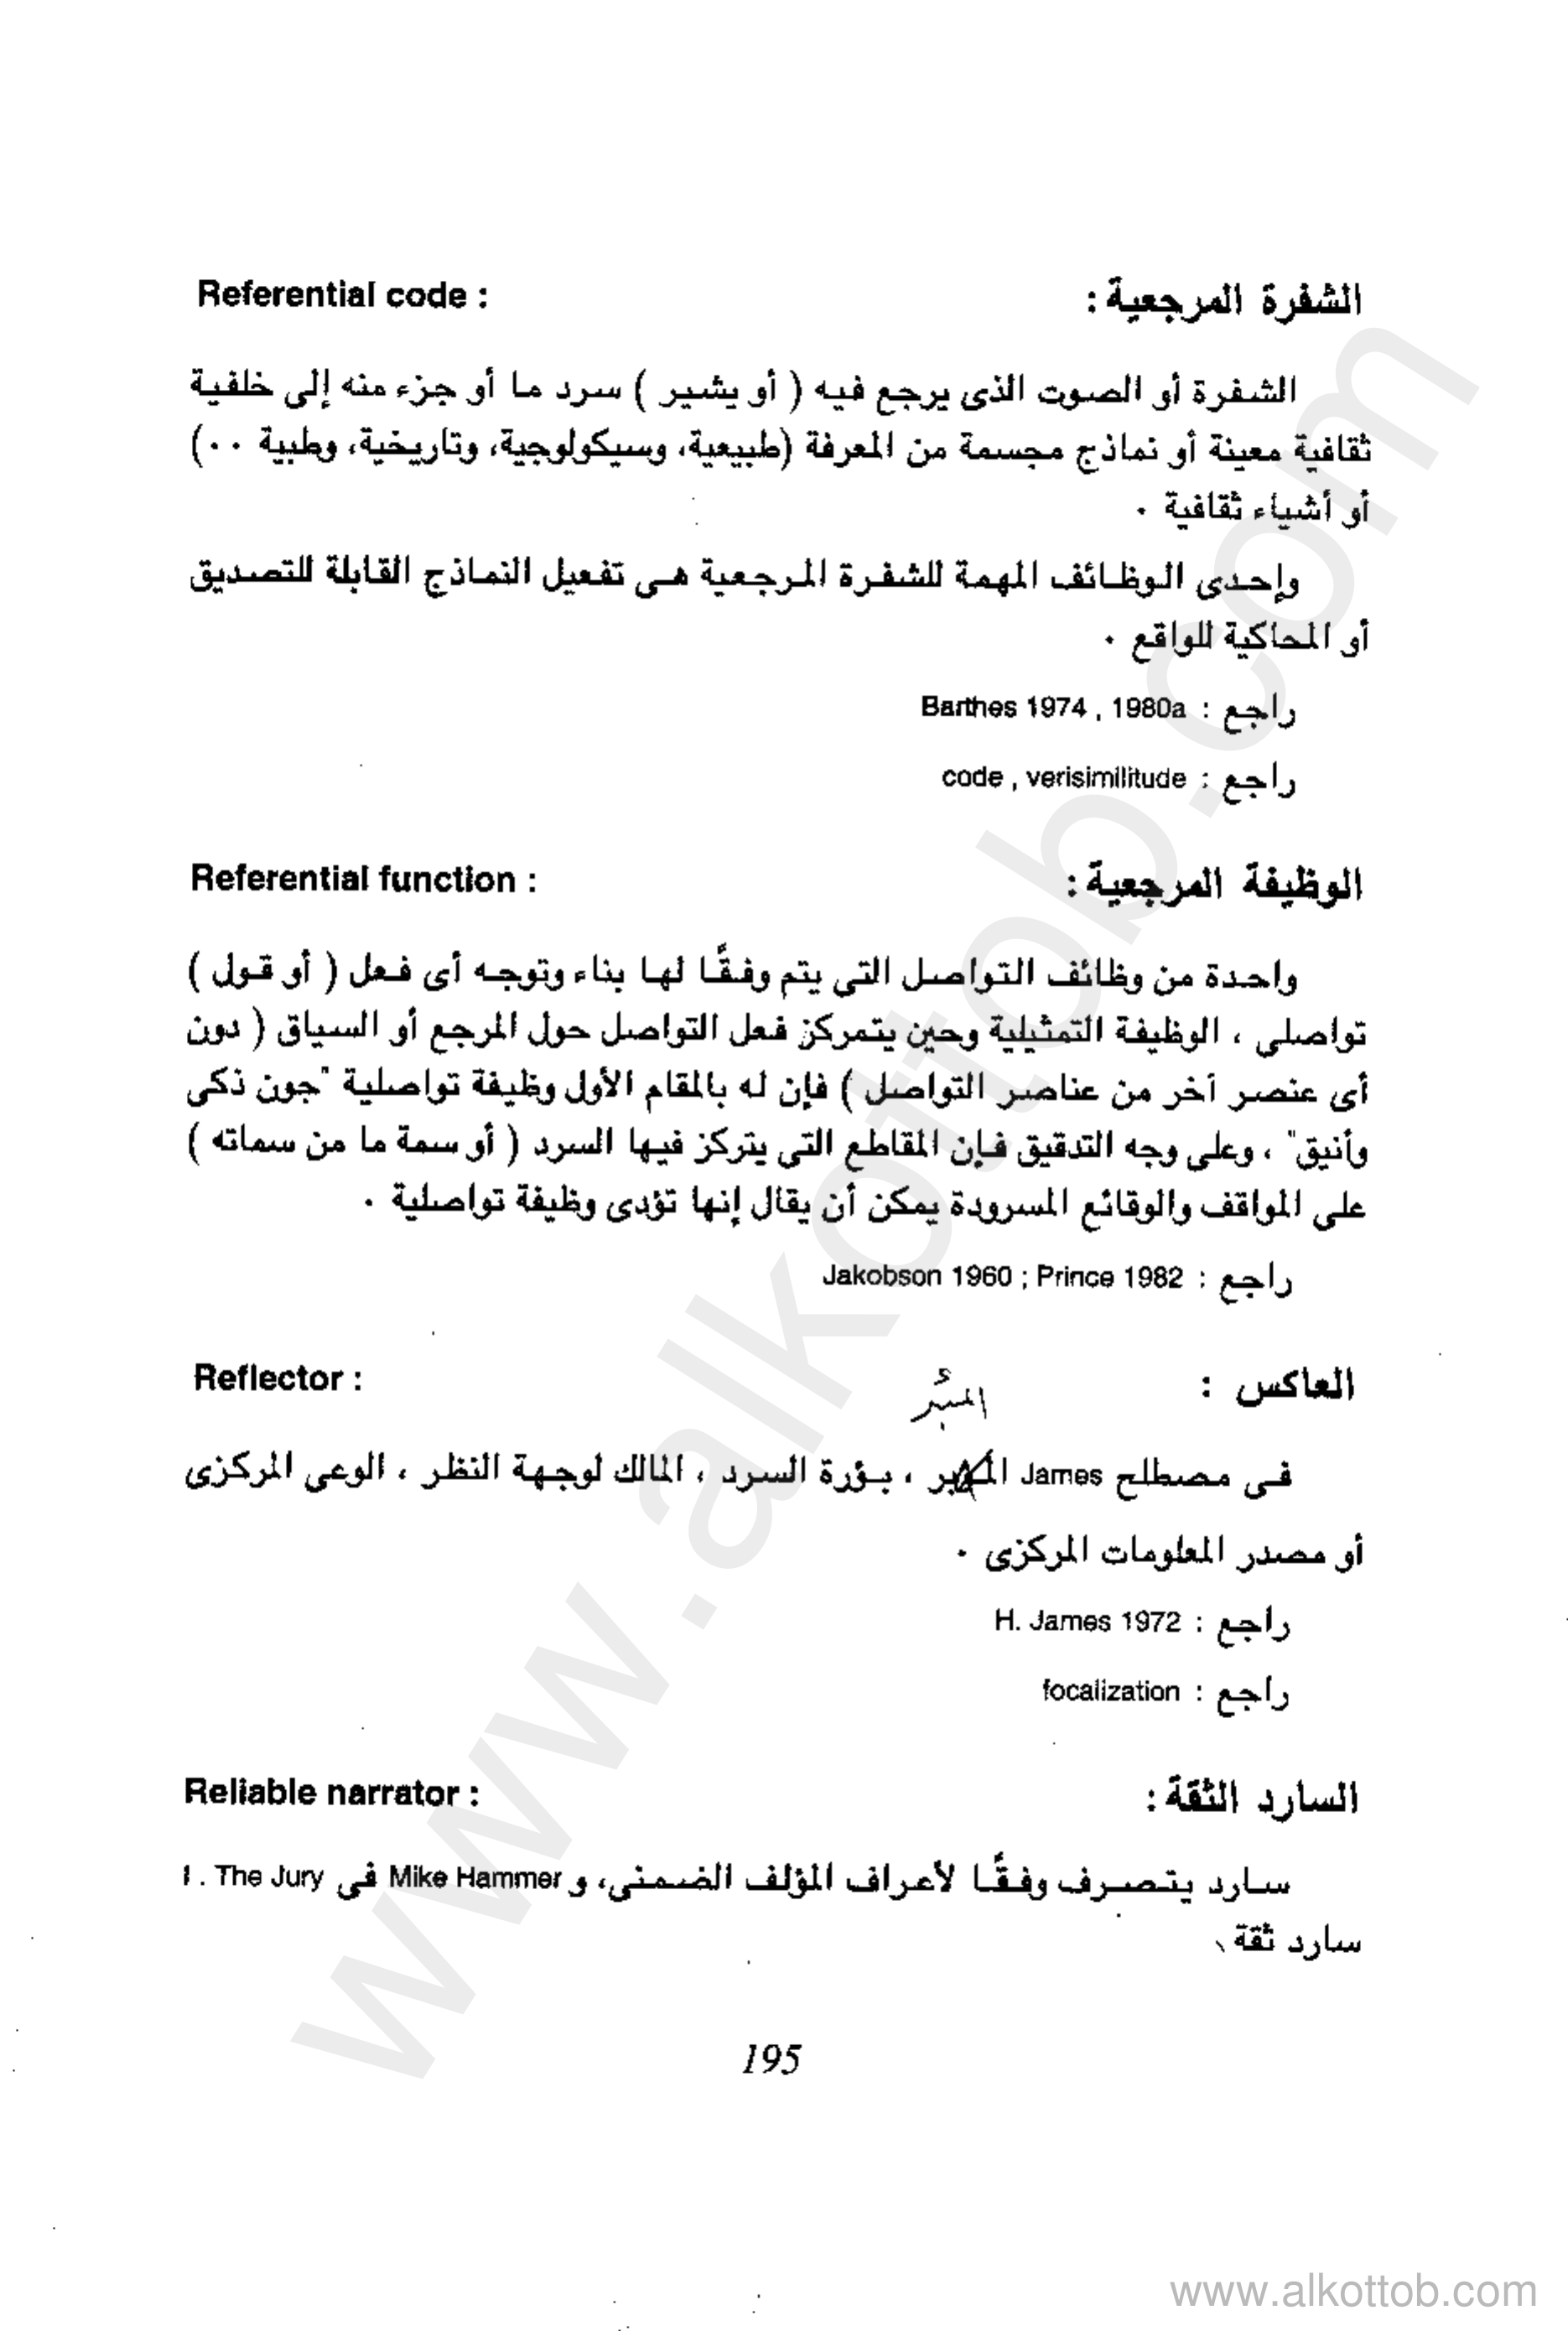 الشفرة المرجعية : Referential code :
الشفرة أو الصوت الذى يرجع فيه ( أو يشير ) سرد ما أو جزء منه إلى خلفية
ثقافية معينة أو نماذج مجسمة من المعرفة (طبيعية، وسيكولوجية، وتاريخية، وطبية ٠٠)
أو أشياء ثقافية ٠
وإحدى الوظائف المهمة للشفرة المرجعية هى تفعيل النماذج القابلة للتصديق
أو المحاكية للواقع ٠
راجع : Barthes 1974 , 1980a
راجع : code , verisimilitude
الوظيفة المرجعية : Referential function :
واحدة من وظائف التواصل التى يتم وفقًا لها بناء وتوجه أى فعل ( أو قول )
تواصلى ، الوظيفة التمثيلية وحين يتمركز فعل التواصل حول المرجع أو السياق ( دون
أى عنصر آخر من عناصر التواصل ) فإن له بالمقام الأول وظيفة تواصلية "جون ذكى
وأنيق" ، وعلى وجه التدقيق فإن المقاطع التى يتركز فيها السرد ( أو سمة ما من سماته )
على المواقف والوقائع المسرودة يمكن أن يقال إنها تؤدى وظيفة تواصلية ٠
راجع : Jakobson 1960 ; Prince 1982
العاكس : Reflector :
فى مصطلح James ، بؤرة السرد ، المالك لوجهة النظر ، الوعى المركزى
أو مصدر المعلومات المركزى ٠
راجع : H. James 1972
راجع : focalization
السارد الثقة : Reliable narrator :
سارد يتصرف وفقًا لأعراف المؤلف الضمنى، و Mike Hammer فى I . The Jury
سارد ثقة
195
www.alkottob.com
www.alkottob.com